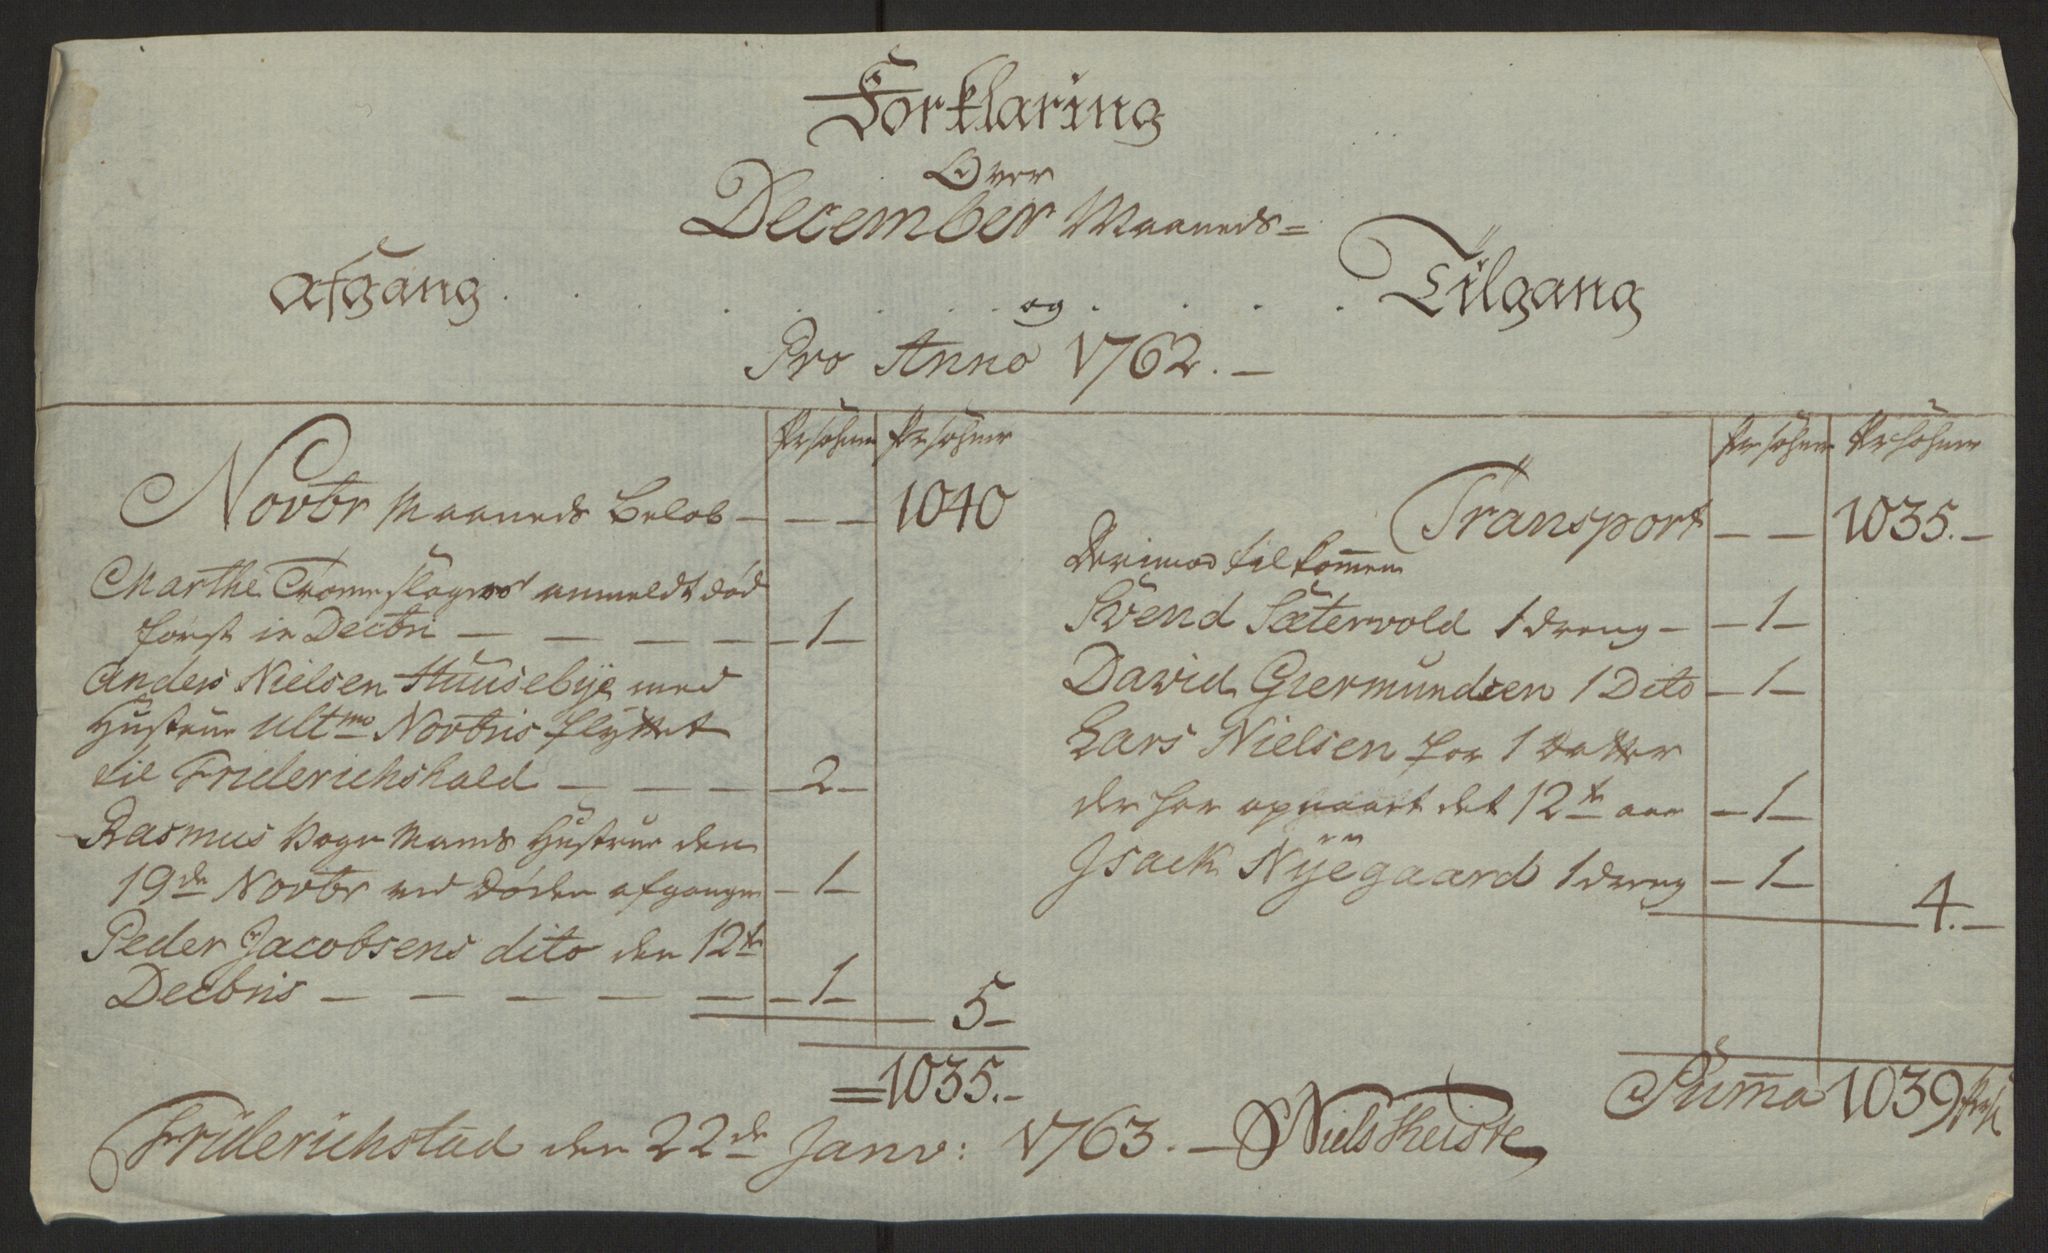 Forklaring
Over
December Maaneds=
Afgang . . . . . . og . . . . Tilgang
Pro Anno 1762. –
Persohner Persohner
Novbr Maaneds Beløb – – – 1040
Marthe Tromeslagers anmeldt død
først in Decbri – – – – – 1 –
Anders Nielsen Huusebÿe med
Hustrue ultmo Novbris flÿttet
til Friderichshald – – – – 2 –
Rasmus Vogn Mands Hustrue den
19de Novbr ved Døden afgangen – 1 –
Peder Jacobsens dito den 12te
Decbris – – – – – – 1 –
5 –
= 1035. –
Persohner Persohner
Transport – – 1035. –
Derimod tilkommen
Svend Sætervold 1 dreng – – 1 –
David Giermundsen 1 Dito – 1 –
Lars Nielsen for 1 datter
der har opnaaet det 12te aar – 1 –
Jsack Nÿegaard 1 dreng – 1 –
4. –
Suma 1039 Pers
Friderichstad den 22de Janv: 1763. – Niels Heiste